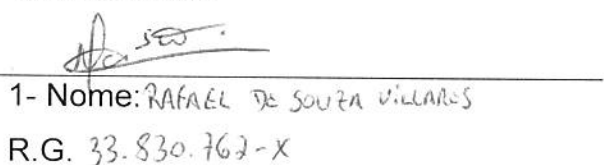 1- Nome: RAFAEL DE SOUZA VILLARES
R.G. 33.830.762-X